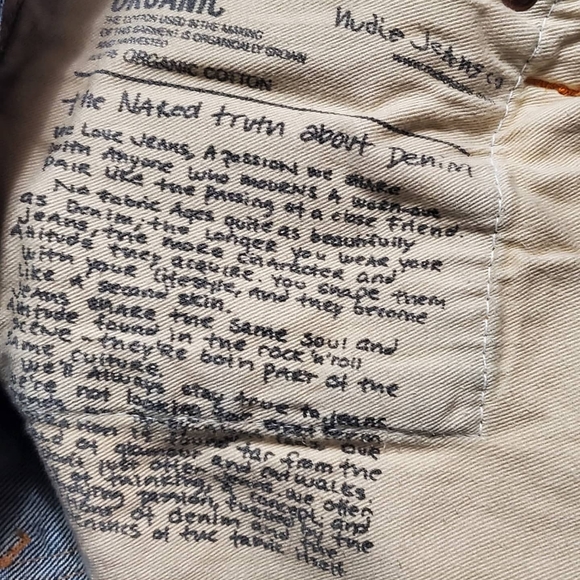 ORGANIC
THE COTTON USED IN THE MAKING
OF THIS GARMENT IS ORGANICALLY GROWN
AND HARVESTED
ORGANIC COTTON
Nudie Jeans co
the Naked truth about Denim
We Love Jeans, A passion we share
with Anyone who mourns A worn-out
pair like the passing of a close friend.
No fabric Ages quite as beautifully
as Denim; the longer you wear your
Jeans, the more character and
Attitude they acquire. You shape them
with your lifestyle, and they become
like A second skin.
Jeans share the same soul and
Attitude found in the rock'n'roll
scene - they're both part of the
same culture.
We'll Always stay true to jeans
we're not looking for
is found far from the
of glamour and catwalks.
just often jeans we offer
of thinking, A concept, and
passion, fueled by the
of denim and the
of the fabric itself